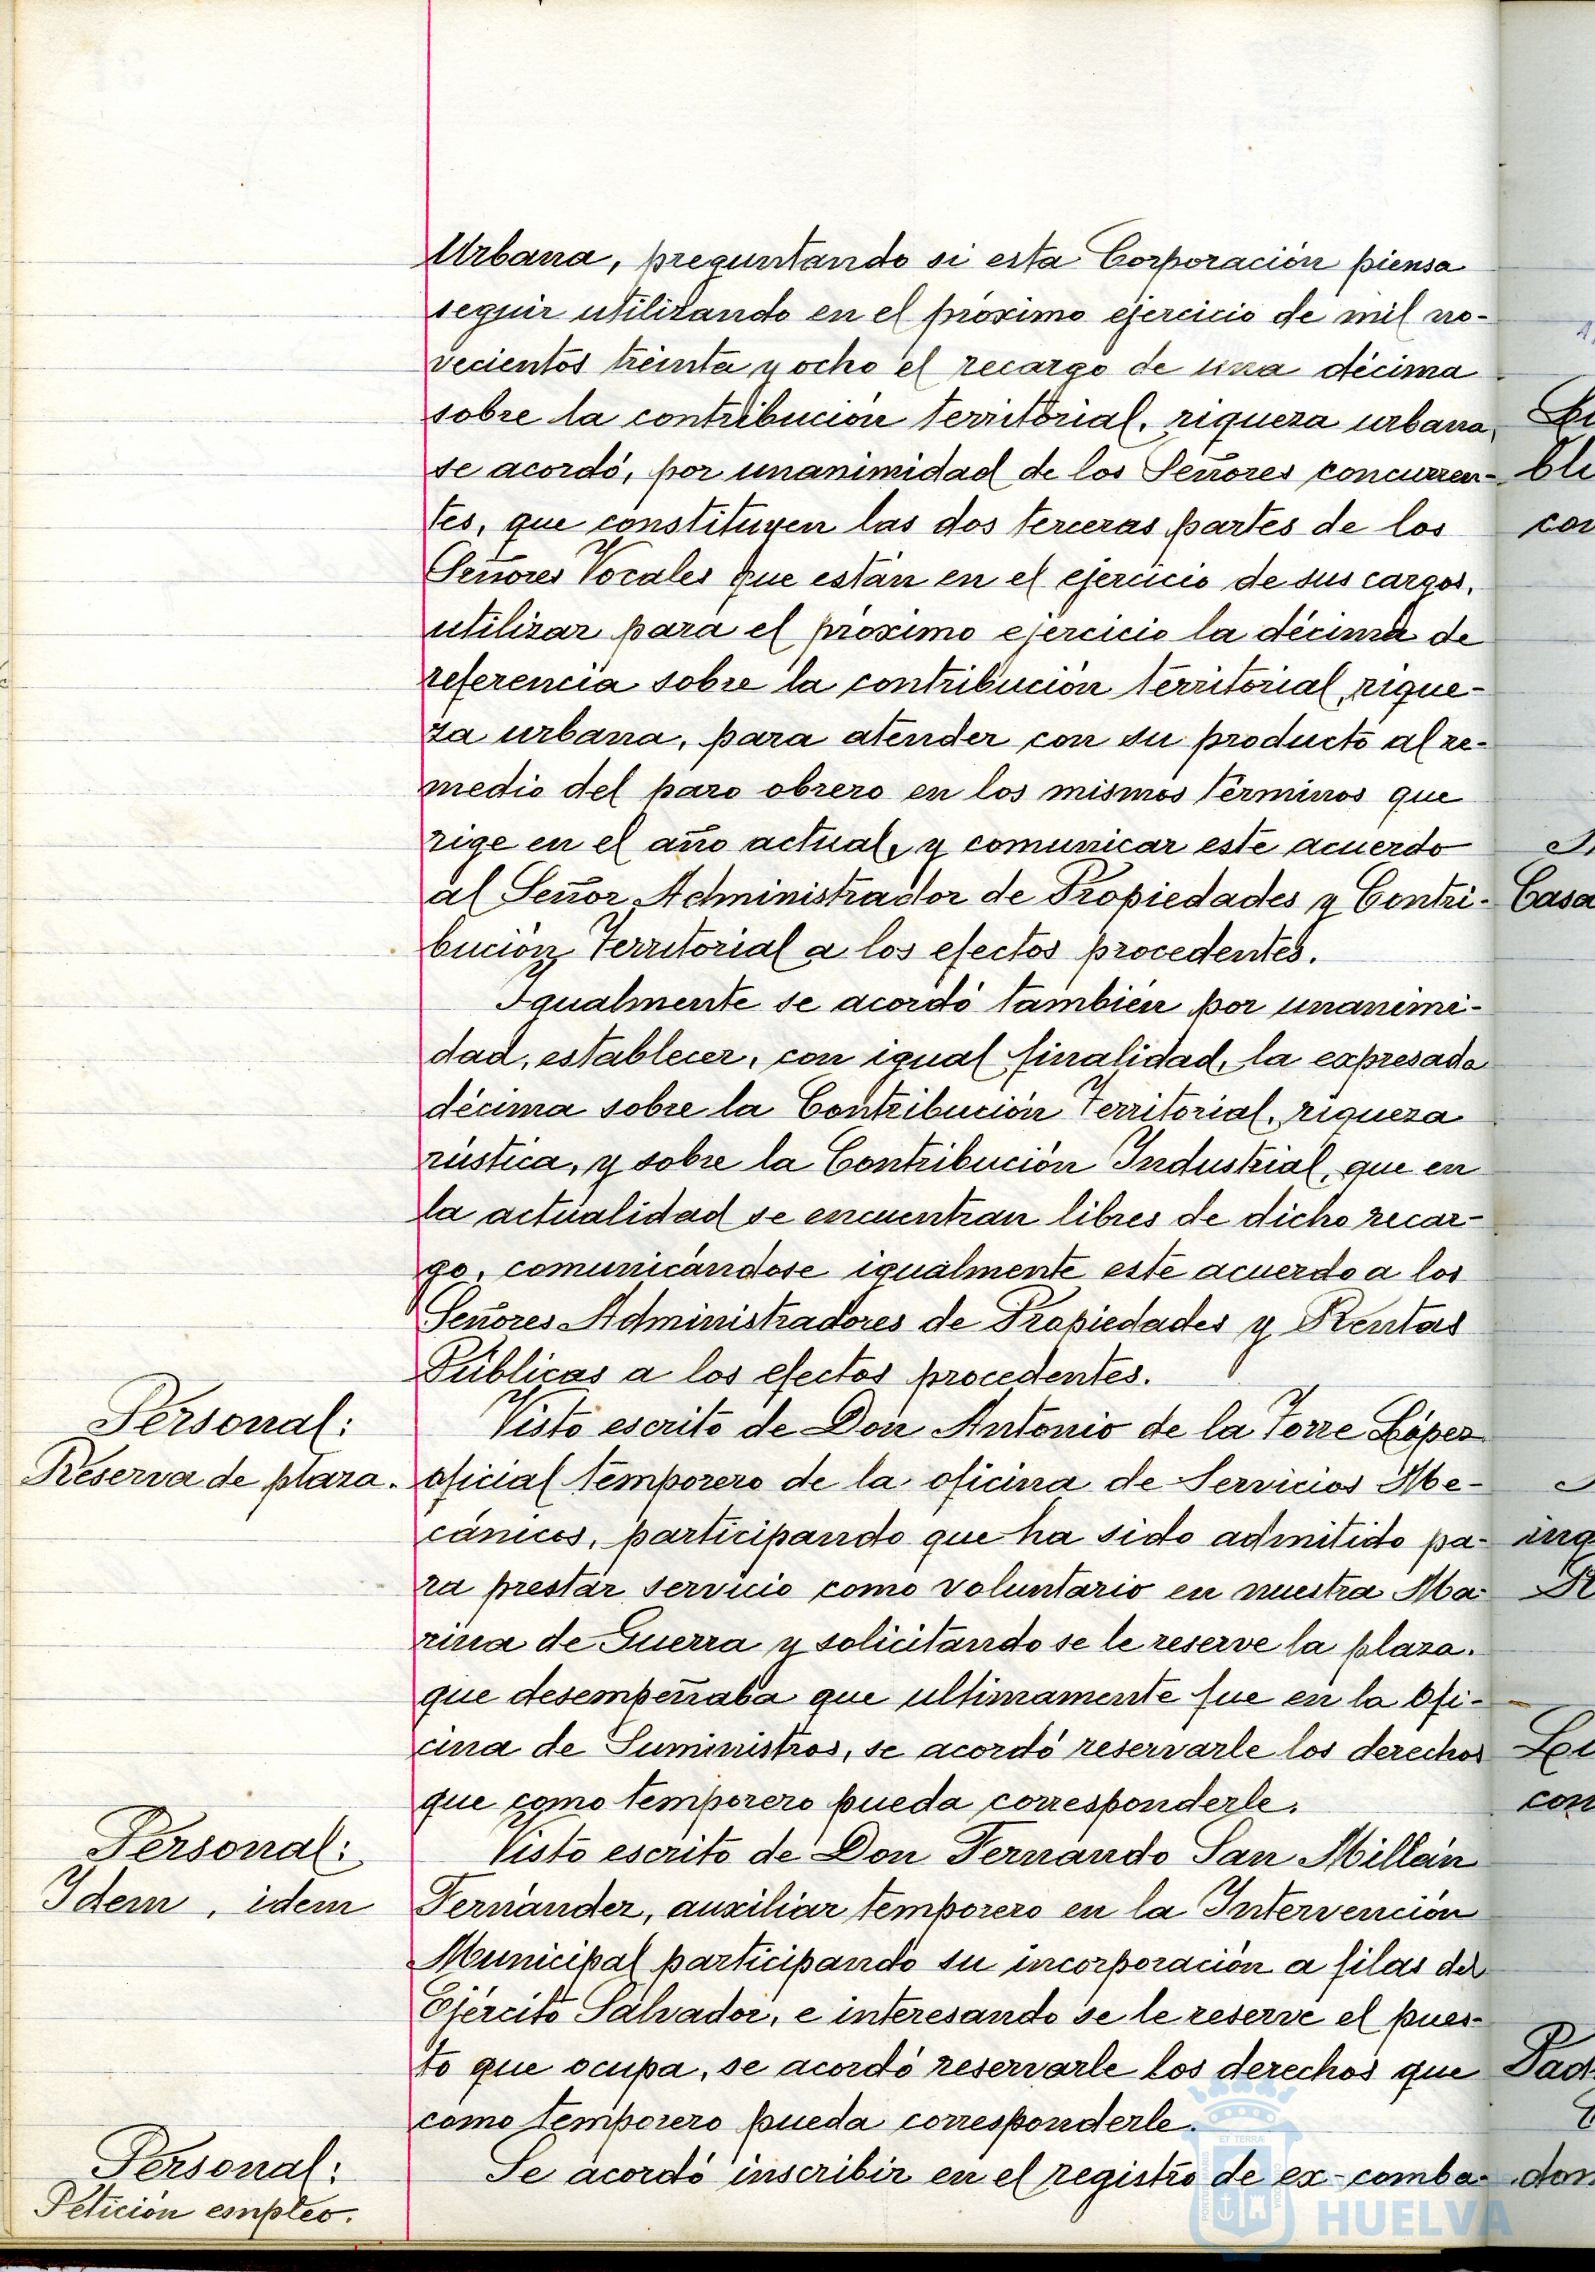 Urbana, preguntando si esta Corporación piensa
seguir utilizando en el próximo ejercicio de mil no-
vecientos treinta y ocho el recargo de una décima
sobre la contribución territorial, riqueza urbana,
se acordó, por unanimidad de los Señores concurren-
tes, que constituyen las dos terceras partes de los
Señores Vocales que están en el ejercicio de sus cargos,
utilizar para el próximo ejercicio la décima de
referencia sobre la contribución territorial, rique-
za urbana, para atender con su producto al re-
medio del paro obrero en los mismos términos que
rige en el año actual, y comunicar este acuerdo
al Señor Administrador de Propiedades y Contri-
bución Territorial a los efectos procedentes.
Igualmente se acordó también por unanimi-
dad, establecer, con igual finalidad, la expresada
décima sobre la Contribución Territorial, riqueza
rústica, y sobre la Contribución Industrial, que en
la actualidad se encuentran libres de dicho recar-
go, comunicándose igualmente este acuerdo a los
Señores Administradores de Propiedades y Rentas
Públicas a los efectos procedentes.
Personal:
Reserva de plaza.
Visto escrito de Don Antonio de la Torre López
oficial temporero de la oficina de Servicios Me-
cánicos, participando que ha sido admitido pa-
ra prestar servicio como voluntario en nuestra Ma-
rina de Guerra y solicitando se le reserve la plaza.
que desempeñaba que ultimamente fue en la Ofi-
cina de Suministros, se acordó reservarle los derechos
que como temporero pueda corresponderle.
Personal:
Idem, idem
Visto escrito de Don Fernando San Millán
Fernández, auxiliar temporero en la Intervención
Municipal participando su incorporación a filas del
Ejército Salvador, e interesando se le reserve el pues-
to que ocupa, se acordó reservarle los derechos que
como temporero pueda corresponderle.
Personal:
Petición empleo.
Se acordó inscribir en el registro de ex-comba-
HUELVA